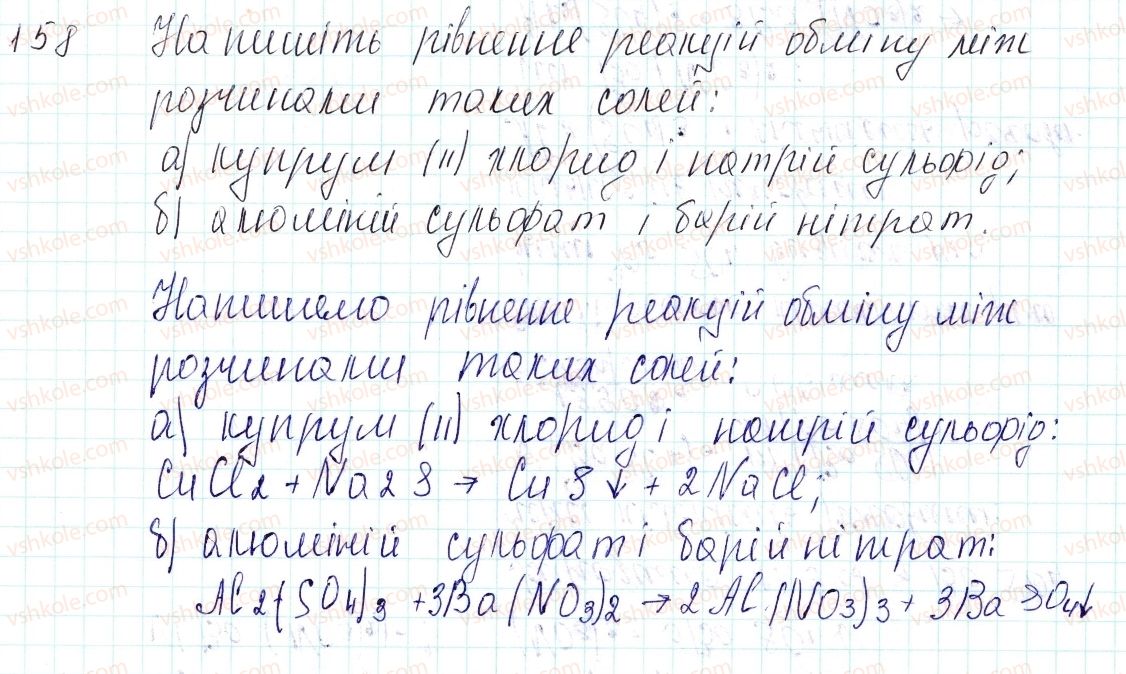 158 Напишіть рівнення реакцій обміну між
розчинами таких солей:
а) купрум (II) хлорид і натрій сульфід;
б) алюміній сульфат і барій нітрат.
Напишемо рівнення реакцій обміну між
розчинами таких солей:
а) купрум (II) хлорид і натрій сульфід:
CuCl2 + Na2S → CuS↓ + 2NaCl;
б) алюміній сульфат і барій нітрат:
Al2(SO4)3 + 3Ba(NO3)2 → 2Al(NO3)3 + 3BaSO4↓